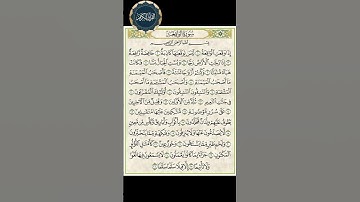 القرآن الكريم
سُورَةُ الوَاقِعَةِ
بِسْمِ اللَّهِ الرَّحْمَٰنِ الرَّحِيمِ
إِذَا وَقَعَتِ ٱلْوَاقِعَةُ ١ لَيْسَ لِوَقْعَتِهَا كَاذِبَةٌ ٢ خَافِضَةٌ رَّافِعَةٌ
٣ إِذَا رُجَّتِ ٱلْأَرْضُ رَجًّا ٤ وَبُسَّتِ ٱلْجِبَالُ بَسًّا ٥ فَكَانَتْ
هَبَآءً مُّنۢبَثًّا ٦ وَكُنتُمْ أَزْوَٰجًا ثَلَٰثَةً ٧ فَأَصْحَٰبُ ٱلْمَيْمَنَةِ
مَآ أَصْحَٰبُ ٱلْمَيْمَنَةِ ٨ وَأَصْحَٰبُ ٱلْمَشْـَٔمَةِ مَآ أَصْحَٰبُ
ٱلْمَشْـَٔمَةِ ٩ وَٱلسَّٰبِقُونَ ٱلسَّٰبِقُونَ ١٠ أُوْلَٰٓئِكَ ٱلْمُقَرَّبُونَ ١١
فِى جَنَّٰتِ ٱلنَّعِيمِ ١٢ ثُلَّةٌ مِّنَ ٱلْأَوَّلِينَ ١٣ وَقَلِيلٌ مِّنَ ٱلْـَٔاخِرِينَ
١٤ عَلَىٰ سُرُرٍ مَّوْضُونَةٍ ١٥ مُّتَّكِـِٔينَ عَلَيْهَا مُتَقَٰبِلِينَ ١٦
يَطُوفُ عَلَيْهِمْ وِلْدَٰنٌ مُّخَلَّدُونَ ١٧ بِأَكْوَابٍ وَأَبَارِيقَ وَكَأْسٍ مِّن مَّعِينٍ
١٨ لَّا يُصَدَّعُونَ عَنْهَا وَلَا يُنزِفُونَ ١٩ وَفَٰكِهَةٍ مِّمَّا يَتَخَيَّرُونَ
٢٠ وَلَحْمِ طَيْرٍ مِّمَّا يَشْتَهُونَ ٢١ وَحُورٌ عِينٌ ٢٢ كَأَمْثَٰلِ ٱللُّؤْلُؤِ
ٱلْمَكْنُونِ ٢٣ جَزَآءًۢ بِمَا كَانُواْ يَعْمَلُونَ ٢٤ لَا يَسْمَعُونَ فِيهَا لَغْوًا
وَلَا تَأْثِيمًا ٢٥ إِلَّا قِيلًا سَلَٰمًا سَلَٰمًا ٢٦